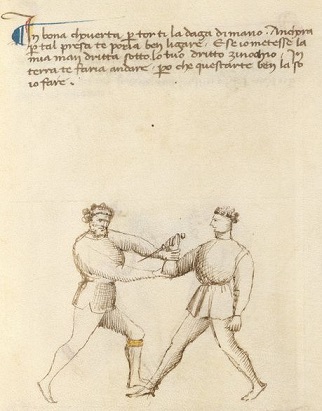 In bona chuverta per torti la daga di mano. Anchora
per tal presa te poria ben ligare. E se io metesse la
mia man dritta sotto lo tuo dritto zinochio. In
terra te faria andare. per che questarte ben la so
io fare.